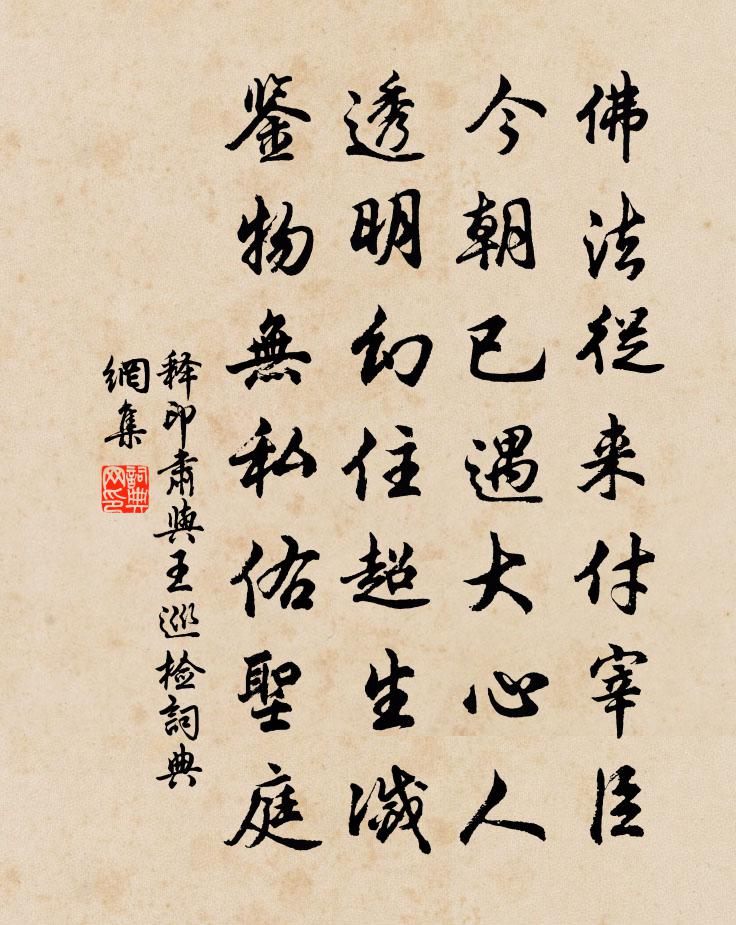 佛法從来付宰臣
今朝已遇大心人
透明幻住超生滅
鉴物無私佑聖庭
释印肃與王巡检詞典
網集
詞典網印